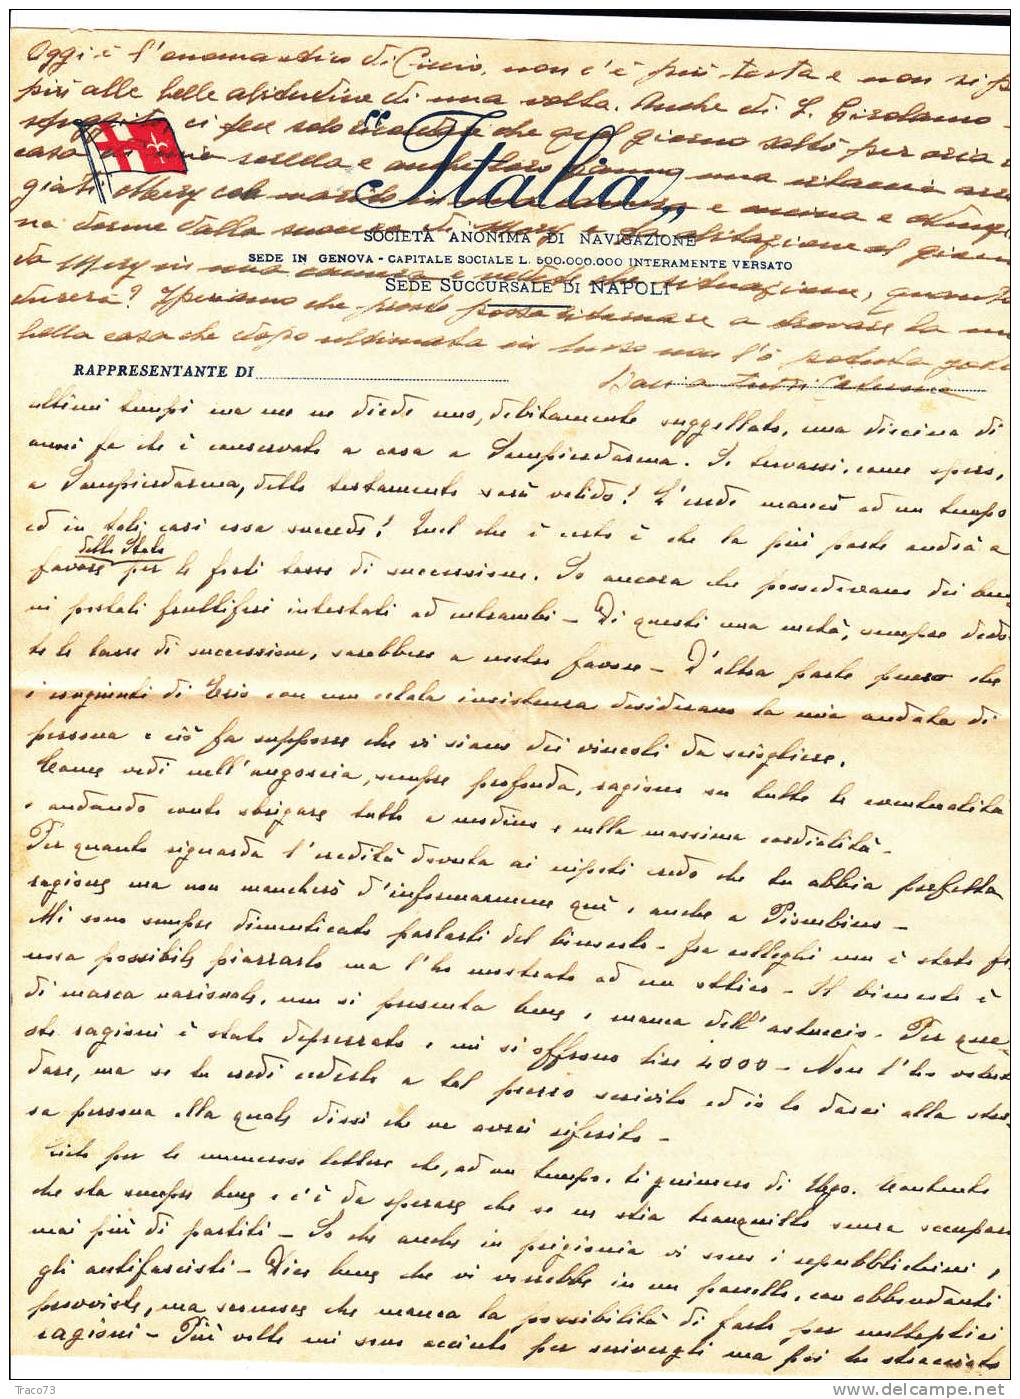 Oggi è l'onomastico di Ciccio, non c'è più testa e non si p
più alle belle abitudini di una volta. Anche di S. Girolamo
ci fece solo che quel giorno saltò per aria
casa sorella e anche loro hanno una
Mary col marito in una e cucina e
na dorme dalla suocera di Mary e abitazione
da Mery in una camera e vedete che situazione, quanto
durerà? Speriamo che presto possa ritornare a trovare la mia
bella casa che dopo ultimata in lusso non l'ò potuta goder
Baci a tutti Caterina
"Italia"
SOCIETÀ ANONIMA DI NAVIGAZIONE
SEDE IN GENOVA - CAPITALE SOCIALE L. 500.000.000 INTERAMENTE VERSATO
SEDE SUCCURSALE DI NAPOLI
RAPPRESENTANTE DI
ultimi tempi ma me ne diede uno, debitamente suggellato, una diecina di
anni fa che è conservato a casa a Sampierdarena. Se trovassi, come spero,
a Sampierdarena, detto testamento sarà valido? L'erede mancò ad un tempo
ed in tali casi cosa succede? Quel che è certo è che la più parte andrà a
favore dello Stato per le forti tasse di successione. So ancora che possedevano dei buo
ni postali fruttiferi intestati ad entrambi - Di questi una metà, sempre dedot
te le tasse di successione, sarebbero a nostro favore - D'altra parte penso che
i congiunti di con una celata insistenza desiderano la mia andata di
persona e ciò fa supporre che vi siano dei vincoli da sciogliere.
Come vedi nell'angoscia, sempre profonda, ragiono su tutte le eventualità
e andando conto sbrigare tutto a modino e colla massima cordialità -
Per quanto riguarda l'eredità dovuta ai nipoti credo che tu abbia perfetta
ragione ma non mancherò d'informarmene quì e anche a Piombino -
Mi sono sempre dimenticato parlarti del binocolo - fra colleghi non è stato fi
nora possibile piazzarlo ma l'ho mostrato ad un ottico - Il binocolo è
di marca nazionale, non si presenta bene e manca dell'astuccio - Per que-
ste ragioni è stato deprezzato e mi si offrono lire 4000 - Non l'ho voluto
dare, ma se tu credi cederlo a tal prezzo scrivilo ed io lo darei alla stes-
sa persona alla quale dissi che ne avrei riferito -
per le numerose lettere che, ad un tempo, ti giunsero di Ugo. Contento
che sta sempre bene e c'è da sperare che se ne stia tranquillo senza occuparsi
mai più di partiti - So che anche in prigionia vi sono i repubblichini,
gli antifascisti - Dice bene che vi vorrebbe in un paesello, con abbondanti
provviste, ma senonchè manca la possibilità di farlo per molteplici
ragioni - Più volte mi sono accinto per scrivergli ma poi ho stracciato
Traco73
www.delcampe.net